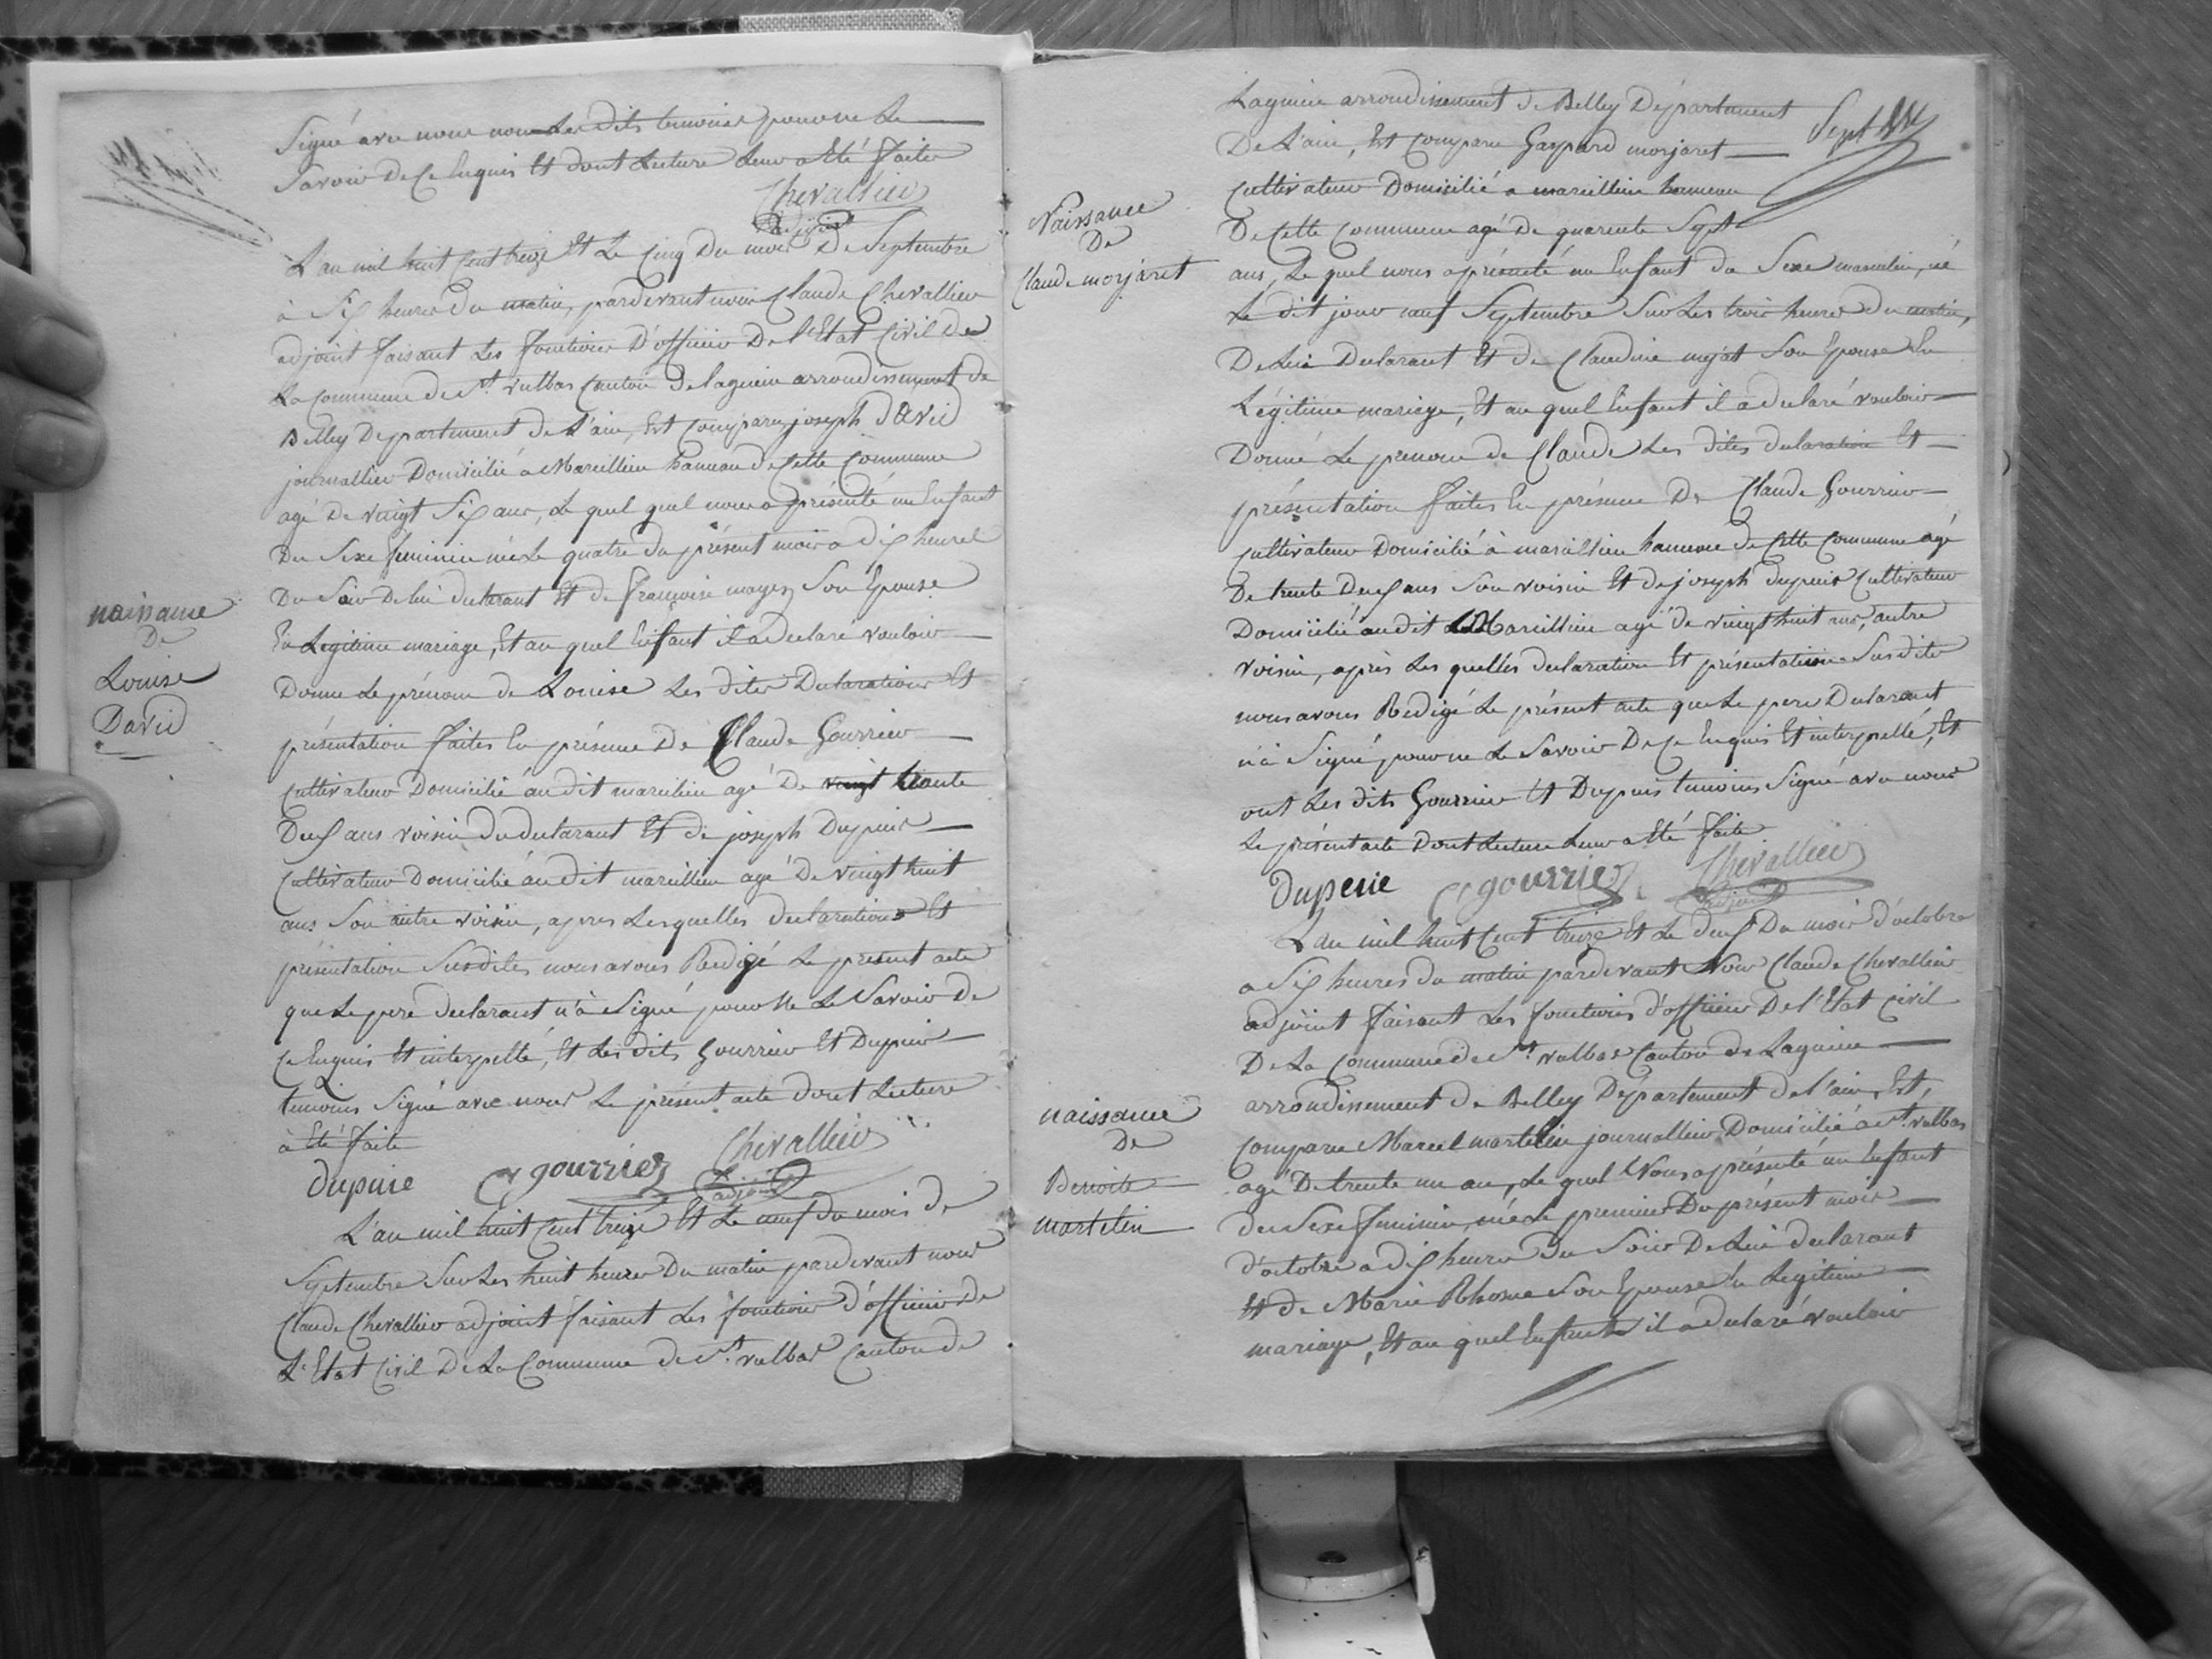 Signé avec nous non Les dits temoins pour ne Le
Savoir De Ce Enquis Et dont Lecture Leur a Eté faite
Chevallier
adjoint
L'an mil huit Cent treize Et Le Cinq Du mois De Septembre
à Six heures du matin, pardevant nous Claude Chevallier
adjoint faisant Les fonctions D'officier De l'Etat Civil de
La Commune de St. vulbas Canton de lagnieu arrondissement de
Belley Departement de L'ain, Est Comparu joseph David
journallier Domicilié a Marcillieu hameau de Cette Commune
agé De vingt Six ans, Le quel quel nous a présenté un Enfant
Du Sexe feminin née Le quatre du présent mois a dix heures
Du Soir De lui declarant Et de francoise mayez Son Epouse
En Legitime mariage, Et au quel Enfant il a declaré vouloir
Donner Le prénom de Louise Les dites Declarations Et
présentation faites En présence De Claude Gourrier
Cultivateur Domicilié au dit marcilieu agé De vingt trante
Deux ans voisin du declarant Et de joseph Dupuis
Cultivateur Domicilié au dit marcillieu agé De vingt huit
ans Son autre voisin, apres Lesquelles declarations Et
présentation Susdites nous avons Redigé Le présent acte
que Le pere declarant n'à Signé pour Ne Le Savoir De
Ce Enquis Et interpellé, Et Les dits Gourrier Et Dupuis
temoins Signé avec nous Le présent acte dont Lecture
à Eté faite
naissance
De
Louise
David
dupuie Cgourrier Chevallier
adjoint
L'an mil huit Cent treize Et Le neuf du mois de
Septembre Sur Les huit heures Du matin pardevant nous
Claude Chevallier adjoint faisant Les fonctions d'officier de
L'Etat Civil De La Commune de St. vulbas Canton de
Lagnieu arrondissement de Belley Département
De L'ain, Est Comparu Gaspard morjaret
Sept
Cultivateur Domicilié a marcillieu hameau
De Cette Commune agé De quarente Sept
ans, Le quel nous a présenté un Enfant du Sexe masculin, né
Le dit jour neuf Septembre Sur Les trois heures du matin,
De Lui Declarant Et de Claudine mejat Son Epouse En
Légitime mariage, Et au quel Enfant il a declaré vouloir
Donné Le prenom de Claude Les dites declaration Et
présentation faites En présence De Claude Gourrier
Cultivateur Domicilié à marcillieu hameau de Cette Commune agé
De trente Deux ans Son voisin Et de joseph dupuis Cultivateur
Domicilié au dit Marcillieu agé de vingt huit ans, autre
voisin, après Les quelles declaration Et présentation Susdite
nous avons Redigé Le présent acte que Le pere Declarant
n'à Signé pour ne Le Savoir De Ce Enquis Et interpellé, Et
ont Les dits Gourrier Et Dupuis temoins Signé avec nous
Le présent acte Dont Lecture Leur a Eté faite
Naissance
De
Claude morjaret
Dupeuie Cgourrier Chevallier
adjoint
L'an mil huit Cent treize Et Le deux Du mois d'octobre
a Six heures du matin pardevant Nous Claude Chevallier
adjoint faisant Les fonctions d'officier De l'Etat Civil
De La Commune de St. vulbas Canton de Lagnieu
arrondissement de Belley Département de l'ain, Est,
Comparu Marcel martelin journallier Domicilié a St. vulbas
agé De trente un an, Le quel Nous a présenté un Enfant
du Sexe feminin, née Le premier Du présent mois
d'octobre a dix heures du Soir De Lui declarant
Et de Marie Rhone Son Epouse En Legitime
mariage, Et au quel Enfant il a declaré vouloir
naissance
De
Benoite
martelin